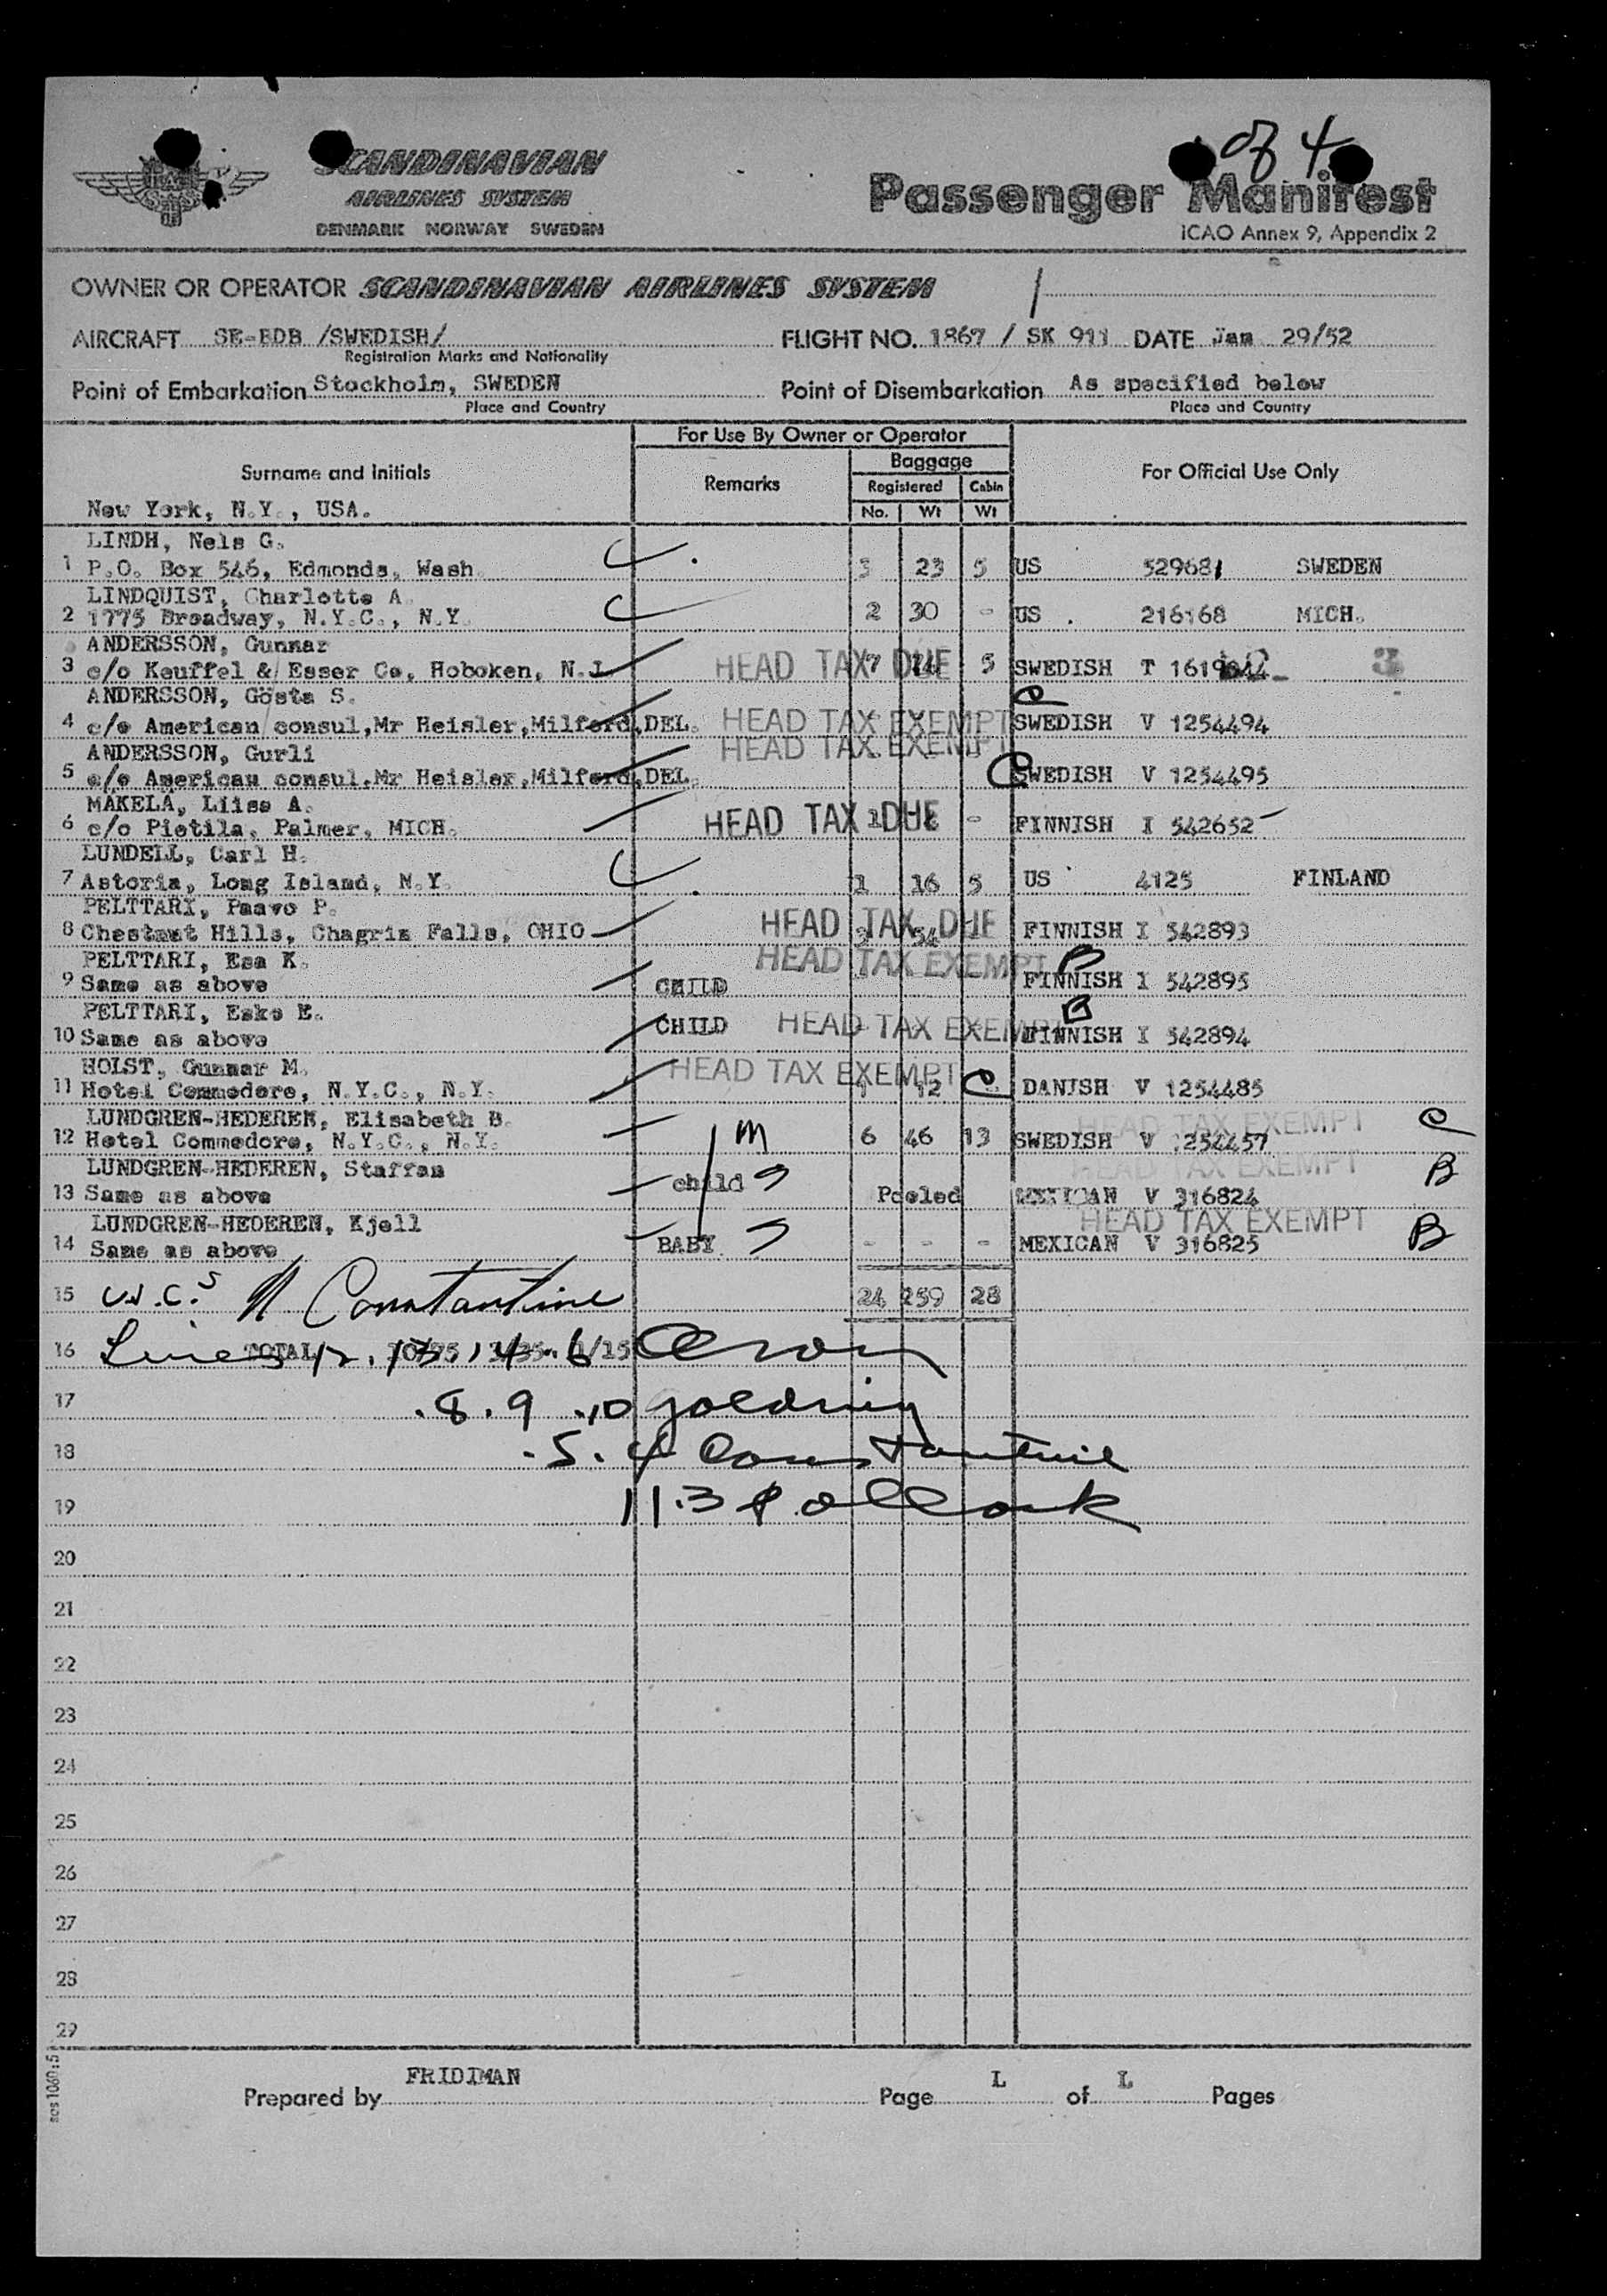 of 4
SCANDINAVIAN
AIRLINES SYSTEM
DENMARK NORWAY SWEDEN
Passenger Manifest
ICAO Annex 9, Appendix 2
OWNER OR OPERATOR SCANDINAVIAN AIRLINES SYSTEM
AIRCRAFT SE-BDB /SWEDISH/ FLIGHT NO. 1867 / SK 911 DATE Jan 29/52
Registration Marks and Nationality
Point of Embarkation Stockholm, SWEDEN Point of Disembarkation As specified below
Place and Country Place and Country
For Use By Owner or Operator
Surname and Initials Remarks Baggage For Official Use Only
Registered Cabin
New York, N.Y., USA. No. Wt Wt
LINDH, Nels G.
1 P.O. Box 546, Edmonds, Wash. 3 23 5 US 529681 SWEDEN
LINDQUIST, Charlotte A.
2 1775 Broadway, N.Y.C., N.Y. 2 30 - US 216168 MICH.
ANDERSSON, Gunnar
3 c/o Keuffel & Esser Co, Hoboken, N.J. HEAD TAX DUE 7 5 SWEDISH T 3
ANDERSSON, Gösta S.
4 c/o American consul, Mr Heisler, Milford, DEL. HEAD TAX EXEMPT SWEDISH V 1254494
ANDERSSON, Gurli HEAD TAX EXEMPT
5 c/o American consul, Mr Heisler, Milford, DEL. SWEDISH V 1254495
MÄKELÄ, Liisa A.
6 c/o Pietila, Palmer, MICH. HEAD TAX DUE - FINNISH I 542652
LUNDELL, Carl H.
7 Astoria, Long Island, N.Y. 1 16 5 US 4125 FINLAND
PELTTARI, Paavo P.
8 Chestnut Hills, Chagrin Falls, OHIO HEAD TAX DUE 54 FINNISH I 542893
PELTTARI, Esa K. HEAD TAX EXEMPT
9 Same as above CHILD FINNISH I 542895
PELTTARI, Esko E.
10 Same as above CHILD HEAD TAX EXEMPT FINNISH I 542894
HOLST, Gunnar M. HEAD TAX EXEMPT
11 Hotel Commodore, N.Y.C., N.Y. 1 12 DANISH V 1254485
LUNDGREN-HEDEREN, Elisabeth B. HEAD TAX EXEMPT C
12 Hotel Commodore, N.Y.C., N.Y. m 6 46 13 SWEDISH V 1254457
LUNDGREN-HEDEREN, Staffan HEAD TAX EXEMPT B
13 Same as above child Pooled MEXICAN V 316824
LUNDGREN-HEDEREN, Kjell HEAD TAX EXEMPT B
14 Same as above BABY - - - MEXICAN V 316825
15 Constantine 24 259 28
16 Lines 12, 13, 14, 6 TOTAL
17 .8.9.10 Goldring
18 .5.4 Constantine
19 11.3 Pollack
20
21
22
23
24
25
26
27
28
29
scs 1060:5
Prepared by FRIDIMAN Page L of L Pages